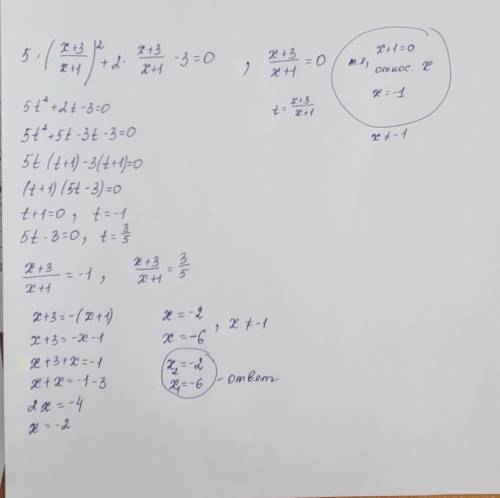 5·((x+3)/(x+1))² + 2·(x+3)/(x+1) - 3 = 0 , (x+3)/(x+1) = 0
x+1=0
относ. x
x=-1
t=(x+3)/(x+1)
x≠-1
5t²+2t-3=0
5t²+5t-3t-3=0
5t(t+1)-3(t+1)=0
(t+1)(5t-3)=0
t+1=0, t=-1
5t-3=0, t=3/5
(x+3)/(x+1)=-1, (x+3)/(x+1)=3/5
x+3=-(x+1)
x+3=-x-1
x+3+x=-1
x+x=-1-3
2x=-4
x=-2
x=-2
x=-6, x≠-1
x₂=-2
x₁=-6 - ответ